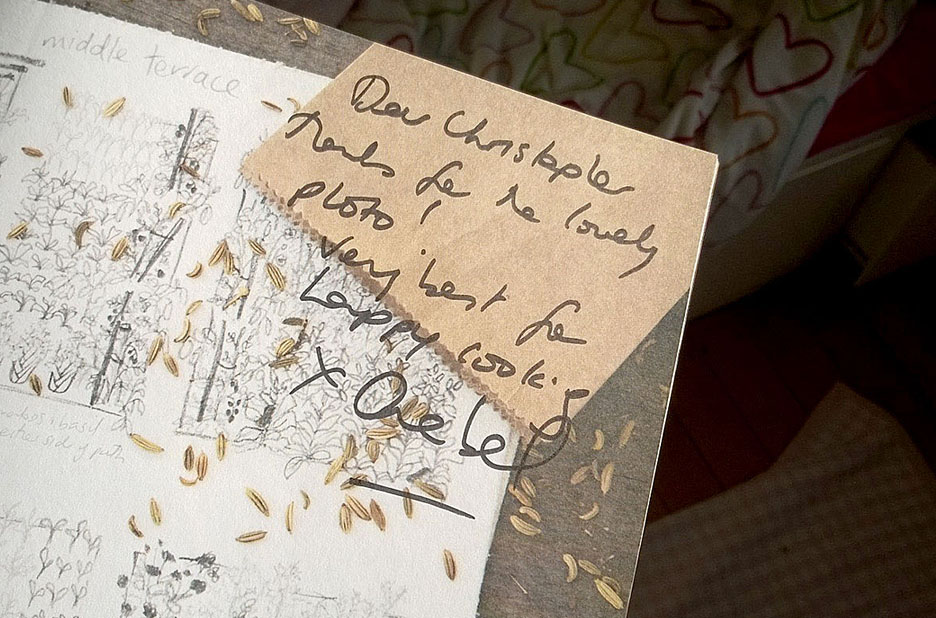 middle terrace
Dear Christopher
thanks for the lovely
photo,
very best for
happy cooking
x